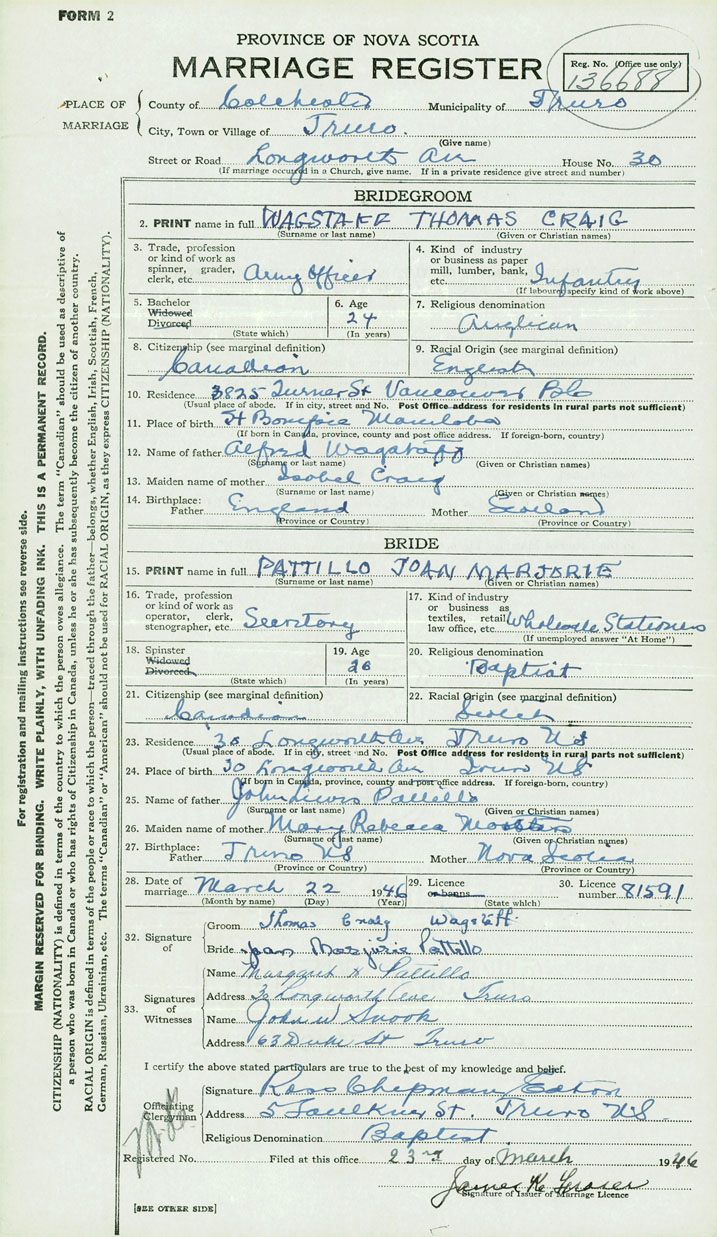 FORM 2
PROVINCE OF NOVA SCOTIA
MARRIAGE REGISTER
Reg. No. (Office use only)
136688
PLACE OF MARRIAGE
County of Colchester Municipality of Truro
City, Town or Village of Truro.
(Give name)
Street or Road Longworth Av House No. 30
(If marriage occurred in a Church, give name. If in a private residence give street and number)
BRIDEGROOM
2. PRINT name in full WAGSTAFF THOMAS CRAIG
(Surname or last name) (Given or Christian names)
3. Trade, profession or kind of work as spinner, grader, clerk, etc. Army Officer
4. Kind of industry or business as paper mill, lumber, bank, etc. Infantry
(If labourer, specify kind of work above)
5. Bachelor Widowed Divorced
(State which)
6. Age 24
(In years)
7. Religious denomination
Anglican
8. Citizenship (see marginal definition)
Canadian
9. Racial Origin (see marginal definition)
English
10. Residence 3825 Turner St Vancouver
(Usual place of abode. If in city, street and No. Post Office address for residents in rural parts not sufficient)
11. Place of birth St Manitoba
(If born in Canada, province, county and post office address. If foreign-born, country)
12. Name of father Alfred Wagstaff
(Surname or last name) (Given or Christian names)
13. Maiden name of mother Isobel Craig
(Surname or last name) (Given or Christian names)
14. Birthplace: Father England Mother Scotland
(Province or Country) (Province or Country)
BRIDE
15. PRINT name in full PATTILLO JOAN MARJORIE
(Surname or last name) (Given or Christian names)
16. Trade, profession or kind of work as operator, clerk, stenographer, etc. Secretary
17. Kind of industry or business as textiles, retail law office, etc. Wholesale Stationers
(If unemployed answer "At Home")
18. Spinster Widowed Divorced
(State which)
19. Age 26
(In years)
20. Religious denomination
Baptist
21. Citizenship (see marginal definition)
Canadian
22. Racial Origin (see marginal definition)
Scotch
23. Residence 30 Longworth Av Truro NS
(Usual place of abode. If in city, street and No. Post Office address for residents in rural parts not sufficient)
24. Place of birth 30 Longworth Av Truro NS
(If born in Canada, province, county and post office address. If foreign-born, country)
25. Name of father John Lewis Pattillo
(Surname or last name) (Given or Christian names)
26. Maiden name of mother Mary Rebecca
(Surname of last name) (Given or Christian names)
27. Birthplace: Father Truro NS Mother Nova Scotia
(Province or Country) (Province or Country)
28. Date of marriage March 22 1946
(Month by name) (Day) (Year)
29. Licence or banns
(State which)
30. Licence number 81591
32. Signature of
Groom Thomas Craig Wagstaff
Bride Joan Marjorie Pattillo
33. Signatures of Witnesses
Name Margaret H Pattillo
Address 30 Longworth Ave Truro
Name John W Snook
Address 63 Duke St Truro
I certify the above stated particulars are true to the best of my knowledge and belief.
Officiating Clergyman
Signature Ross Chipman Eaton
Address 5 Faulkner St. Truro NS
Religious Denomination Baptist
Registered No. Filed at this office 23rd day of March 1946
James K Fraser
Signature of Issuer of Marriage Licence
[SEE OTHER SIDE]
For registration and mailing instructions see reverse side.
MARGIN RESERVED FOR BINDING. WRITE PLAINLY, WITH UNFADING INK. THIS IS A PERMANENT RECORD.
CITIZENSHIP (NATIONALITY) is defined in terms of the country to which the person owes allegiance. The term "Canadian" should be used as descriptive of
a person who was born in Canada or who has rights of Citizenship in Canada, unless he or she has subsequently become the citizen of another country.
RACIAL ORIGIN is defined in terms of the people or race to which the person—traced through the father—belongs, whether English, Irish, Scottish, French,
German, Russian, Ukrainian, etc. The terms "Canadian" or "American" should not be used for RACIAL ORIGIN, as they express CITIZENSHIP (NATIONALITY).